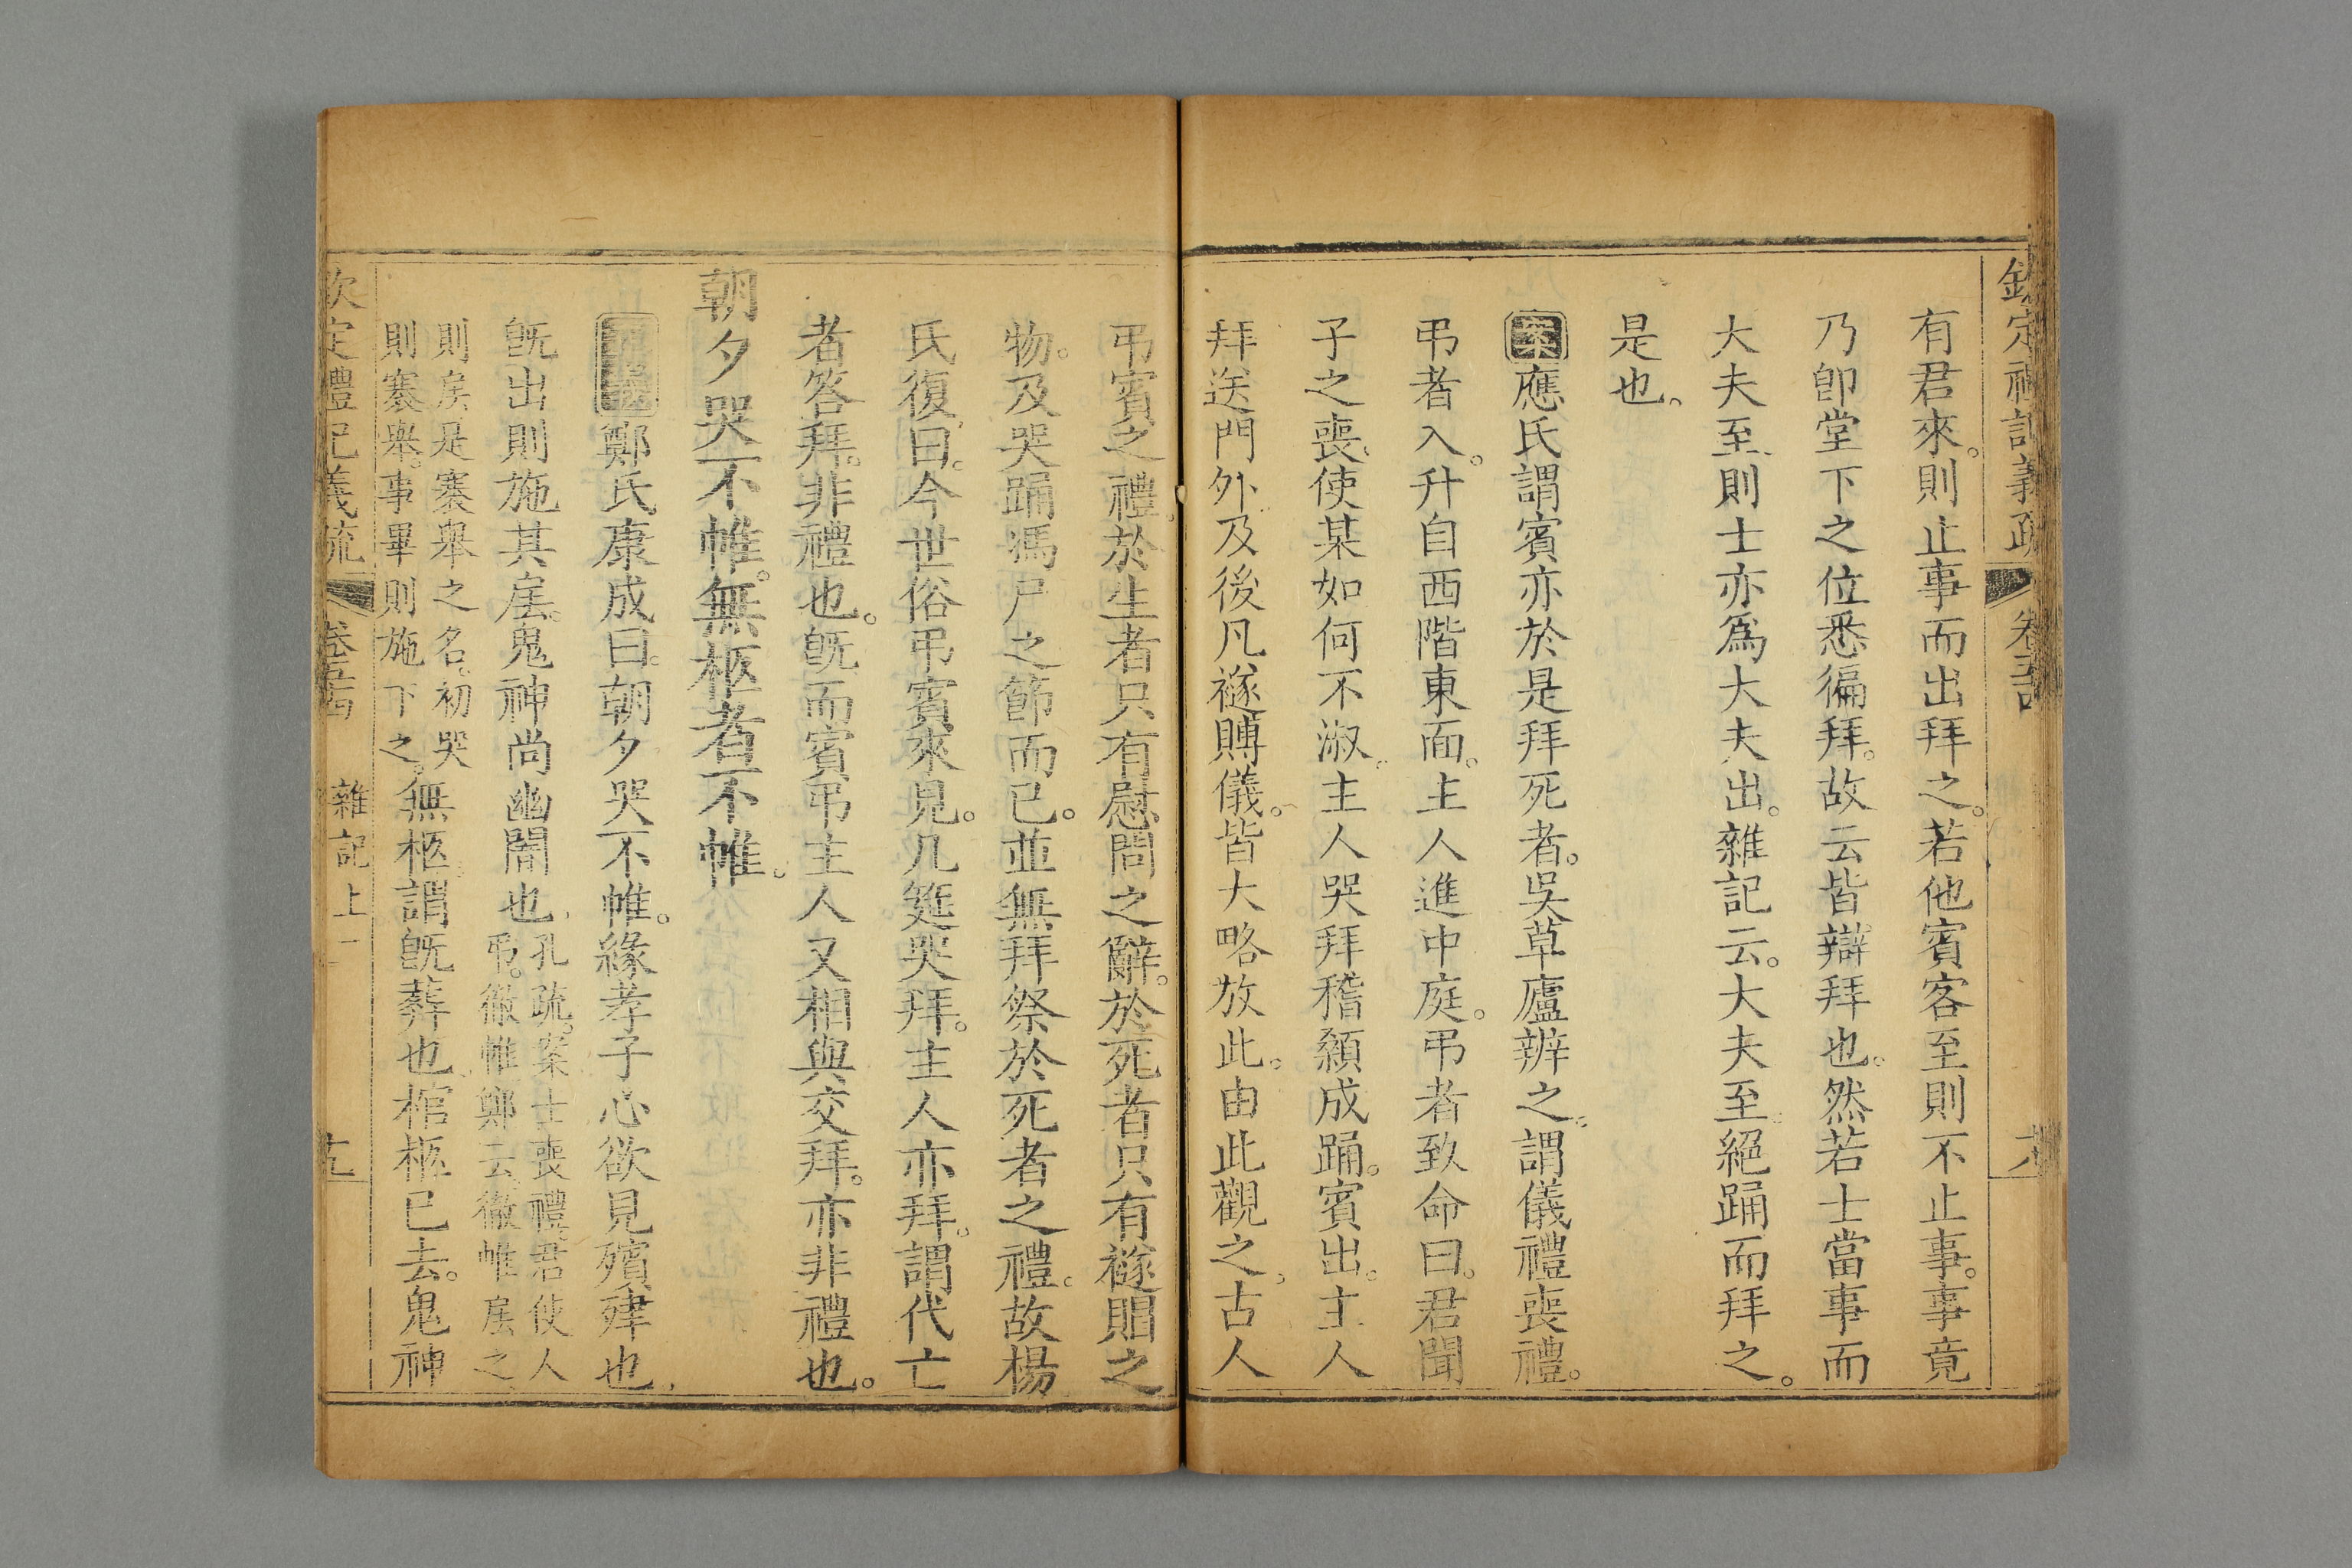 欽定禮記義疏 卷五
有君來。則止事而出拜之。若他賓客至則不止事。事竟
乃卽堂下之位悉徧拜。故云皆辯拜也。然若士當事而
大夫至。則士亦爲大夫出。雜記云。大夫至。絕踊而拜之。
是也。
案應氏謂賓亦於是拜死者。吳草廬辨之。謂儀禮喪禮。
弔者入。升自西階東面。主人進中庭。弔者致命曰。君聞
子之喪。使某如何不淑。主人哭拜稽顙成踊。賓出。主人
拜送門外。及後凡襚賻儀。皆大略放此。由此觀之。古人
弔賓之禮。於生者只有慰問之辭。於死者只有襚賵之
物。及哭踊馮尸之節而已。並無拜祭於死者之禮。故楊
氏復曰。今世俗弔賓來見。几筵哭拜。主人亦拜。謂代亡
者答拜。非禮也。旣而賓弔主人又相與交拜。亦非禮也。
朝夕哭不帷。無柩者不帷。
鄭氏康成曰。朝夕哭不帷。緣孝子心欲見殯肂也。
旣出則施其扆。鬼神尚幽闇也。孔疏。案士喪禮。君使人
弔。徹帷。鄭云。徹帷扆之。
則扆是褰舉之名。初哭
則褰舉。事畢則施下之。無柩謂旣葬也。棺柩已去。鬼神
欽定禮記義疏 卷五十四 雜記上